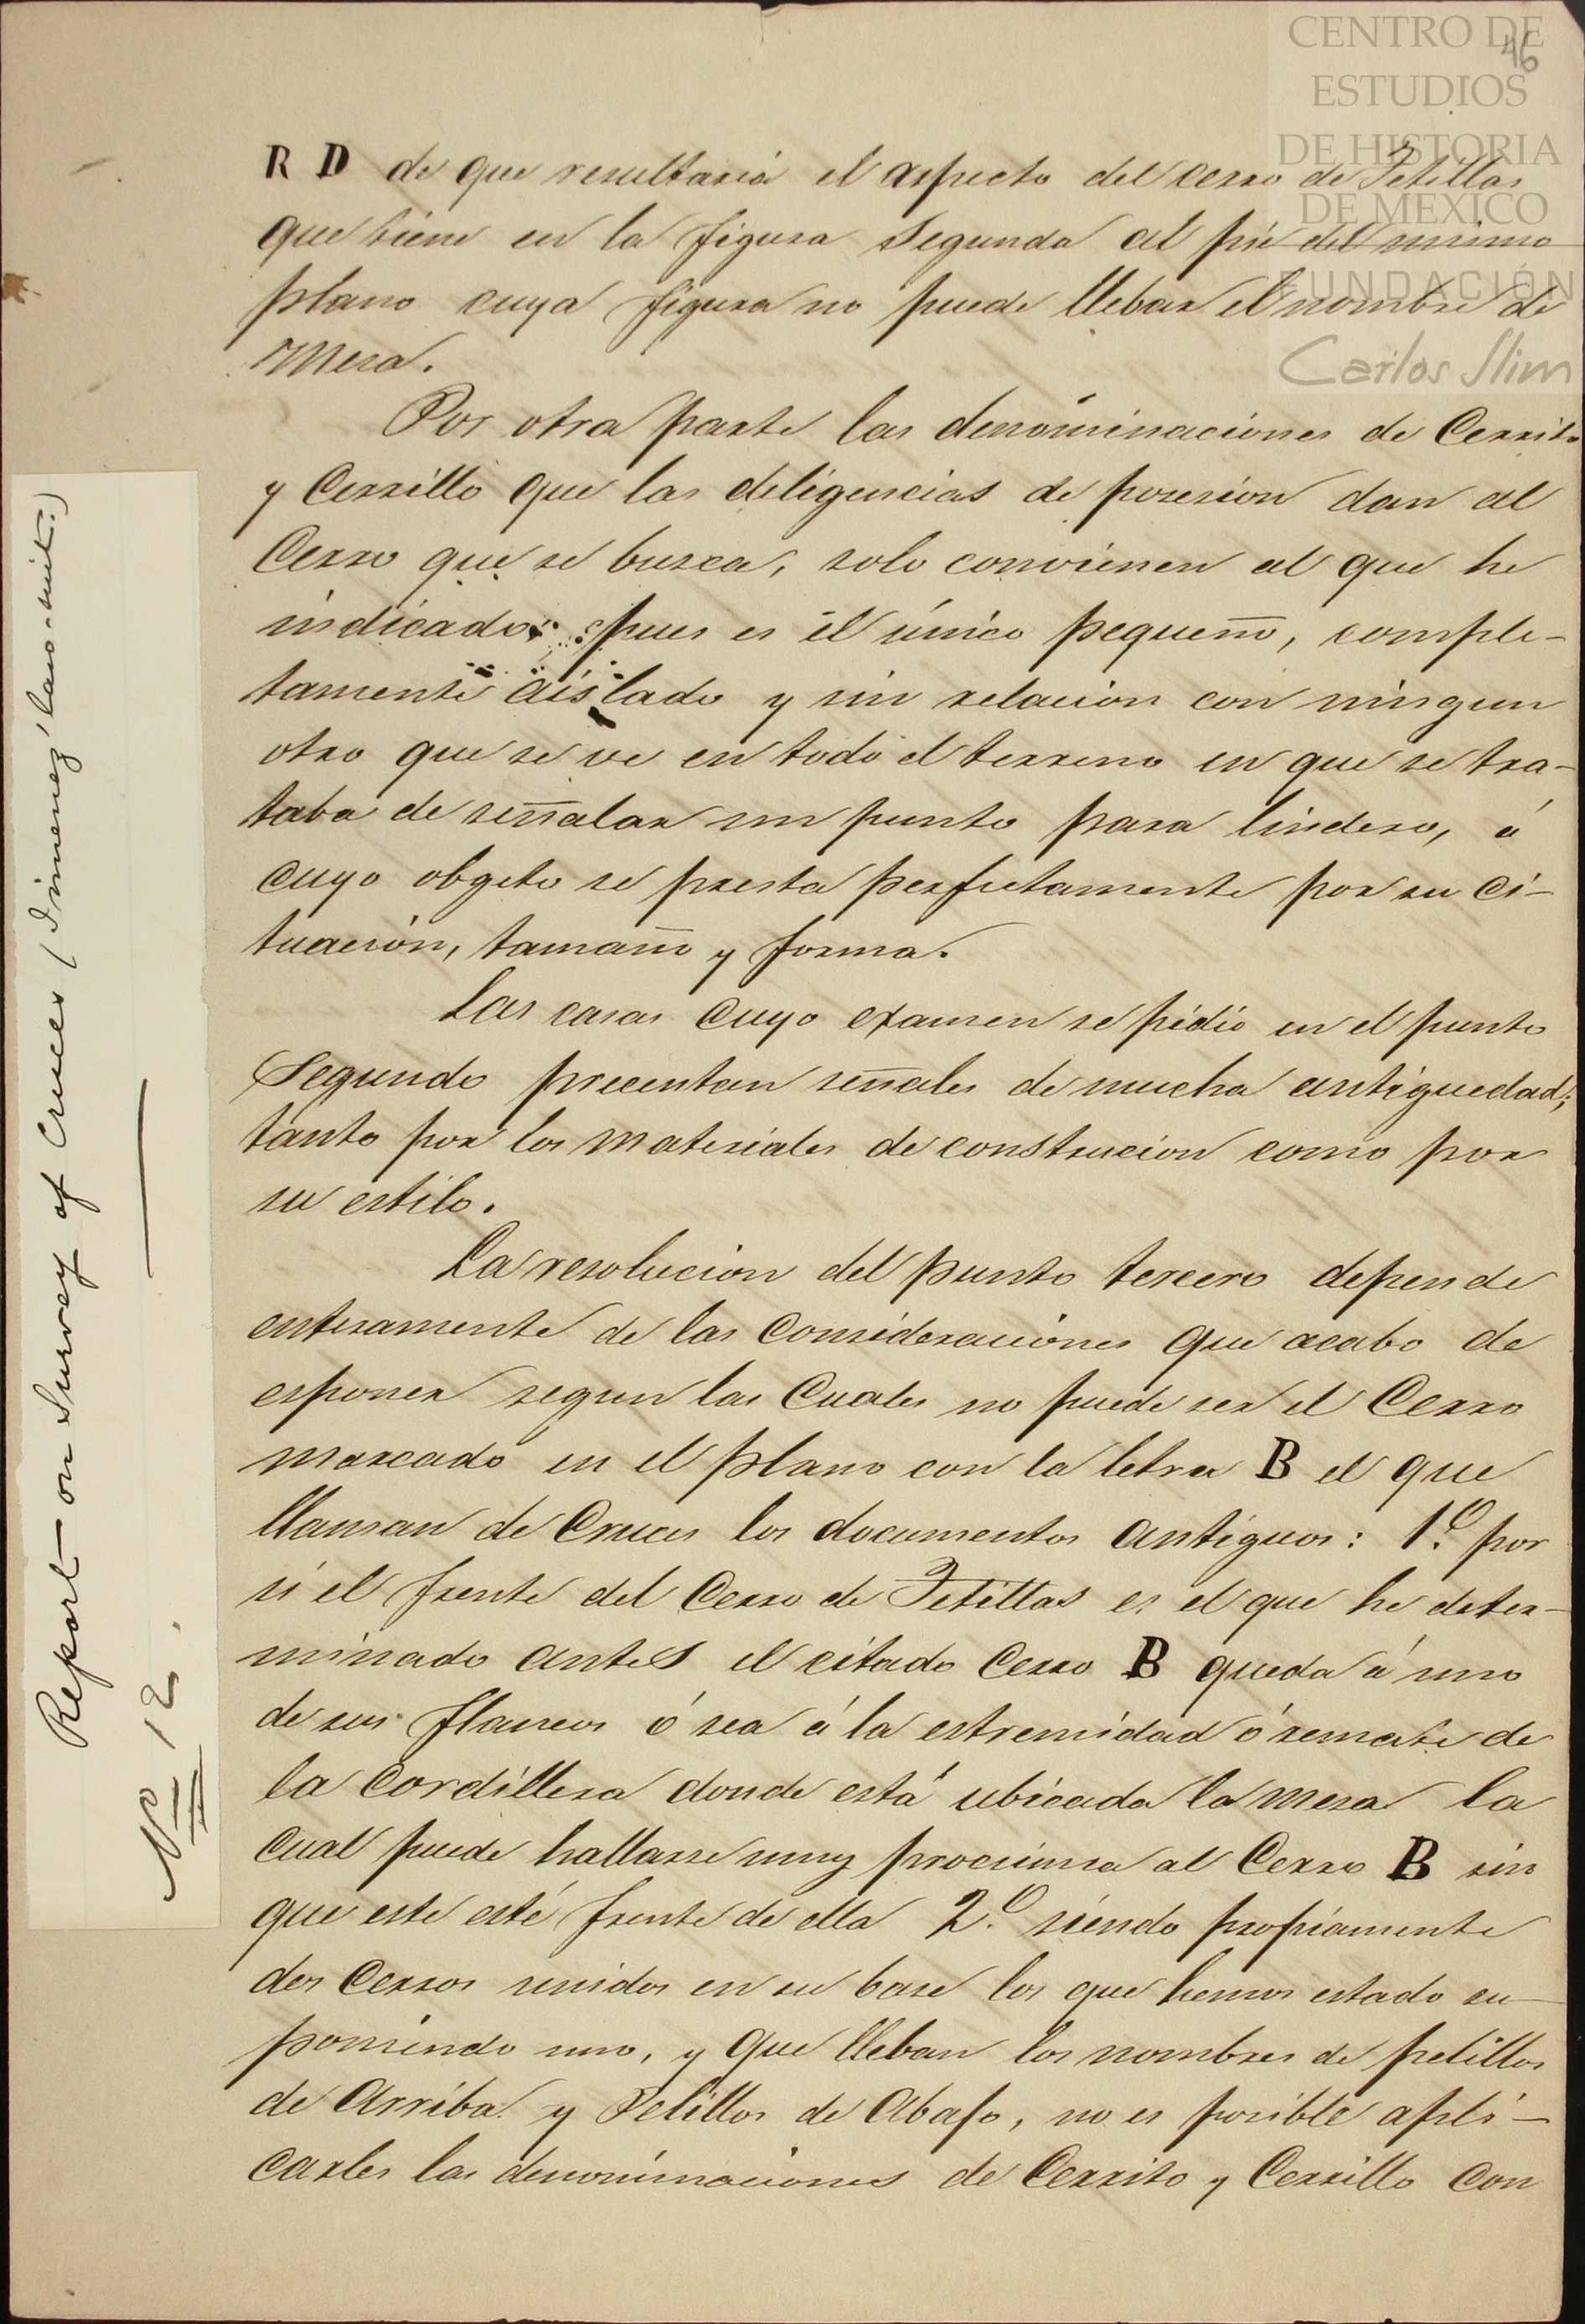 CENTRO DE
ESTUDIOS
DE HISTORIA
DE MEXICO
FUNDACIÓN
Carlos Slim
46
R D de que resultaria el aspecto del cerro de Tetillas
que tiene en la figura Segunda al pié del mismo
plano cuya figura no puede llebar el nombre de
Mesa.
Por otra parte las denominaciones de Cerrito
y Cerrillo que las deligencias de posesion dan al
Cerro que se busca, solo convienen al que he
indicado; pues es el único pequeño, comple-
tamente aislado y sin relacion con ningun
otro que se ve en todo el terreno en que se tra-
taba de señalar un punto para lindero, á
cuyo obgeto se presta perfectamente por su ci-
tuación, tamaño y forma.
Las casas cuyo examen se pidió en el punto
Segundo precentan señales de mucha antiguedad;
tanto por los materiales de construcion como por
su estilo.
La resolucion del punto tercero depende
enteramente de las Consideraciones que acabo de
esponer segun las Cuales no puede ser el Cerro
marcado en el plano con la letra B el que
llaman de Cruces los documentos antiguos: 1.º por
si el frente del Cerro de Tetillas es el que he deter-
minado antes el citado Cerro B queda á uno
de sus flancos ó sea á la estremidad ó remate de
la Cordillera donde está ubicada la mesa la
cual puede hallarse muy procsima al Cerro B sin
que este esté frente de ella 2.º siendo propiamente
dos Cerros unidos en su base los que hemos estado su-
poniendo uno, y que lleban los nombres de petillos
de Arriba y Petillos de Abajo, no es posible apli-
carles las denominaciones de Cerrito y Cerrillo con
Report on Survey of Cruces (Jimenez'
Nº 12.